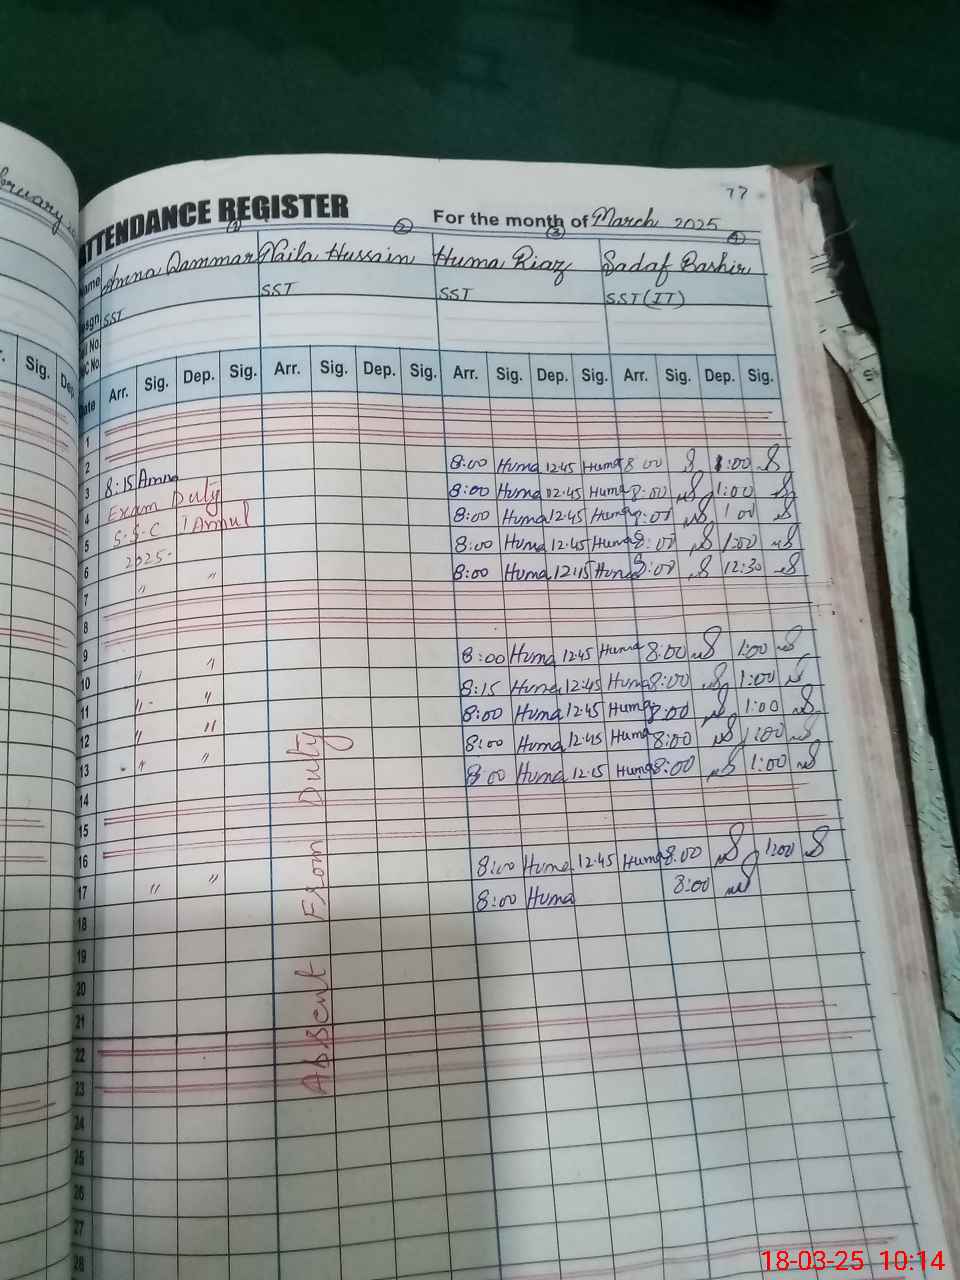 bruary
77
ATTENDANCE REGISTER For the month of March 2025
(1) (2) (3) (4)
Name Amna Qammar Naila Hussain Huma Riaz Sadaf Bashir
Desgn SST SST SST SST (IT)
No
C No
Sig. De
Date Arr. Sig. Dep. Sig. Arr. Sig. Dep. Sig. Arr. Sig. Dep. Sig. Arr. Sig. Dep. Sig.
1
2
3 8:15 Amna 8:00 Huma 12:45 Huma 8:00 1:00
4 Exam Duty 8:00 Huma 12:45 Huma 8:00 1:00
5 S.S.C 1 Annul 8:00 Huma 12:45 Huma 8:00 1:00
6 2025. 8:00 Huma 12:45 Huma 8:00 1:00
7 " " 8:00 Huma 12:15 Huma 8:00 12:30
8
9
10 " " 8:00 Huma 12:45 Huma 8:00 1:00
11 " " 8:15 Huma 12:45 Huma 8:00 1:00
12 " " 8:00 Huma 12:45 Huma 8:00 1:00
13 " " 8:00 Huma 12:45 Huma 8:00 1:00
14 8:00 Huma 12:15 Huma 8:00 1:00
15
16
17 " " 8:00 Huma 12:45 Huma 8:00 1:00
18 8:00 Huma 8:00
19
20
21
22
23
24
25
26
27
28
ABSent From Duty
18-03-25 10:14